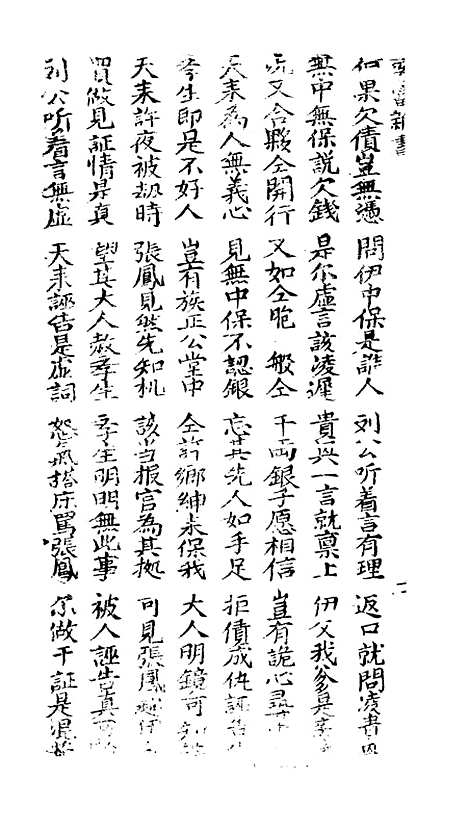 新書
果欠債豈無憑 問伊中保是誰人 列公听着言有理 返口就問凌貴
無中無保說欠錢 是尔虛言該凌遲 貴兴一言就禀上 伊父我爹是
況又合夥仝開行 又如仝胞一般仝 千両銀子愿相信 豈有詭心
天来為人無義心 見無中保不認銀 忘其先人如手足 拒債成仇誣告
孝生即是不好人 豈有族正公堂中 仝許鄉紳来保我 大人明鏡可知
天来許夜被刼時 張鳳見然先知机 該当报官為其拠 可見張鳳
買做見証情是真 望其大人救孝生 孝生明明無此事 被人誣告真
列公听着言無虛 天来誣告是虛詞 怒氣搭床罵張鳳 尔做干証是